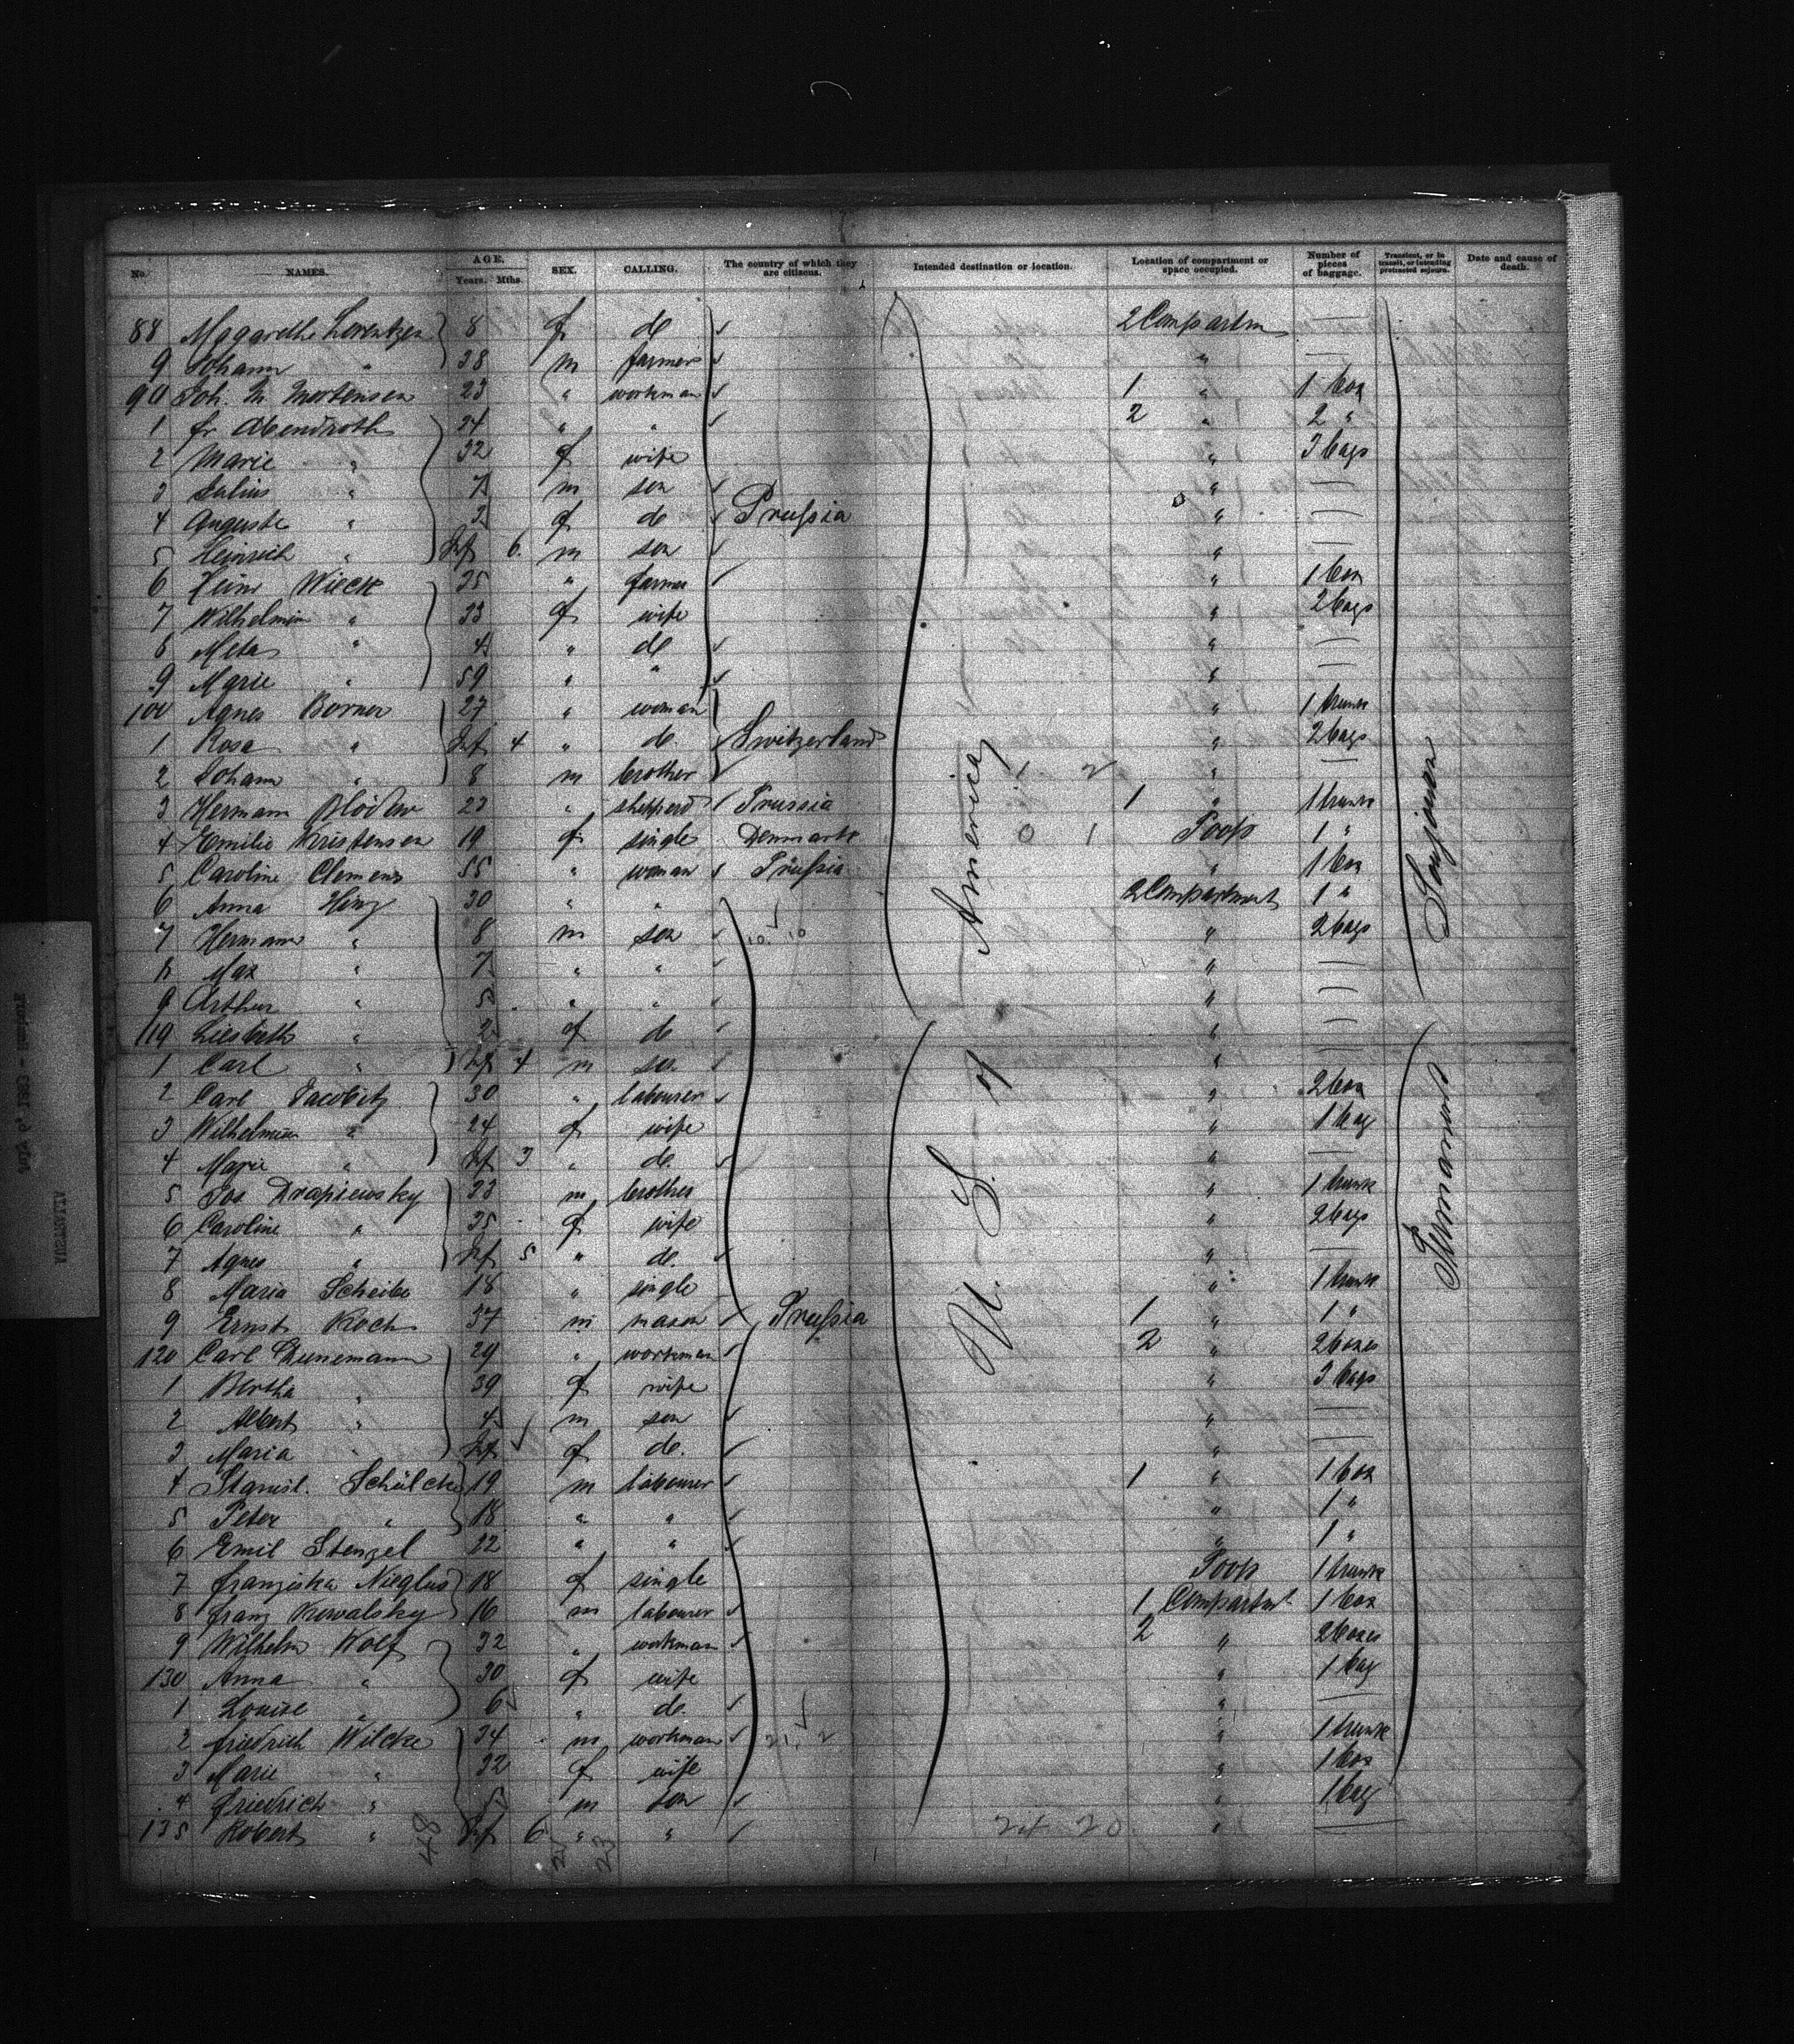 No. NAMES. AGE. Years. Mths. SEX. CALLING. The country of which they are citizens. Intended destination or location. Location of compartment or space occupied. Number of pieces of baggage. Transient, or in transit, or intending protracted sojourn. Date and cause of death.
88 Magareth Lorentzen 8 f de 2 Compartm —
9 Johann " 38 m farmer " —
90 Joh. M Mortensen 23 " workman 1 " 1 box
1 fr Abendroth 34 " " 2 " 2 "
2 Marie " 32 f wife " 3 bags
3 Julius " 7 m son " —
4 Auguste " 3 f de Prussia " —
5 Heinrich " Inf 6 m son " —
6 Heinr Wieck 35 " farmer " 1 box
7 Wilhelmin " 33 f wife " 2 bags
8 Meta " 4 " de " —
9 Marie " 59 " " " —
100 Agnes Borner 27 " woman " 1 trunk
1 Rosa " Inf 4 " de. Switzerland " 2 bags
2 Johann " 8 m brother " —
3 Hermann Blödew 23 " shepperd Prussia 1 " 1 trunk
4 Emilie Kristensen 19 f single Denmark 0 1 Poop 1 "
5 Caroline Clemens 55 " woman Prussia " 1 box
6 Anna Hinz 30 " " 2 Compartment 1 "
7 Hermann " 8 m son 10. 10 " 2 bags
8 Max " 7 " " " —
9 Arthur " 5 " " " —
110 Liesbeth " 2 f de " —
1 Carl " Inf 4 m son " —
2 Carl Jacobitz 30 " labourer " 2 box
3 Wilhelmine " 24 f wife " 1 bag
4 Marie " Inf 3 " de. " —
5 Jos Drapiewsky 33 m brother " 1 trunk
6 Caroline " 35 f wife " 2 bags
7 Agnes " Inf 5 " de. " —
8 Maria Scheibe 18 " single " 1 trunk
9 Ernst Koch 37 m mason Prussia 1 " 1 "
120 Carl Dunemann 29 " workman 2 " 2 boxes
1 Bertha " 39 f wife " 3 bags
2 Albert " 4 m son " —
3 Maria " Inf f de. " —
4 Stanisl. Schülck 19 m labourer 1 " 1 box
5 Peter " 18 " " " 1 "
6 Emil Stenzel 22 " " " 1 "
7 Franziska Nieglus 18 f single Poop 1 trunk
8 Franz Kowalsky 16 m labourer 1 Compartmt 1 box
9 Wilhelm Wolf 32 " workman 2 " 2 boxes
130 Anna " 30 f wife " 1 bag
1 Louise " 6 " de. " —
2 Friedrich Wilcke 34 m workman 21. 2 " 1 trunk
3 Marie " 32 f wife " 1 box
4 Friedrich " 5 m son " 1 bag
135 Robert " Inf 6 " " 24 20 " —
48 25 23
U. S. of America
Sojourn
Permanent